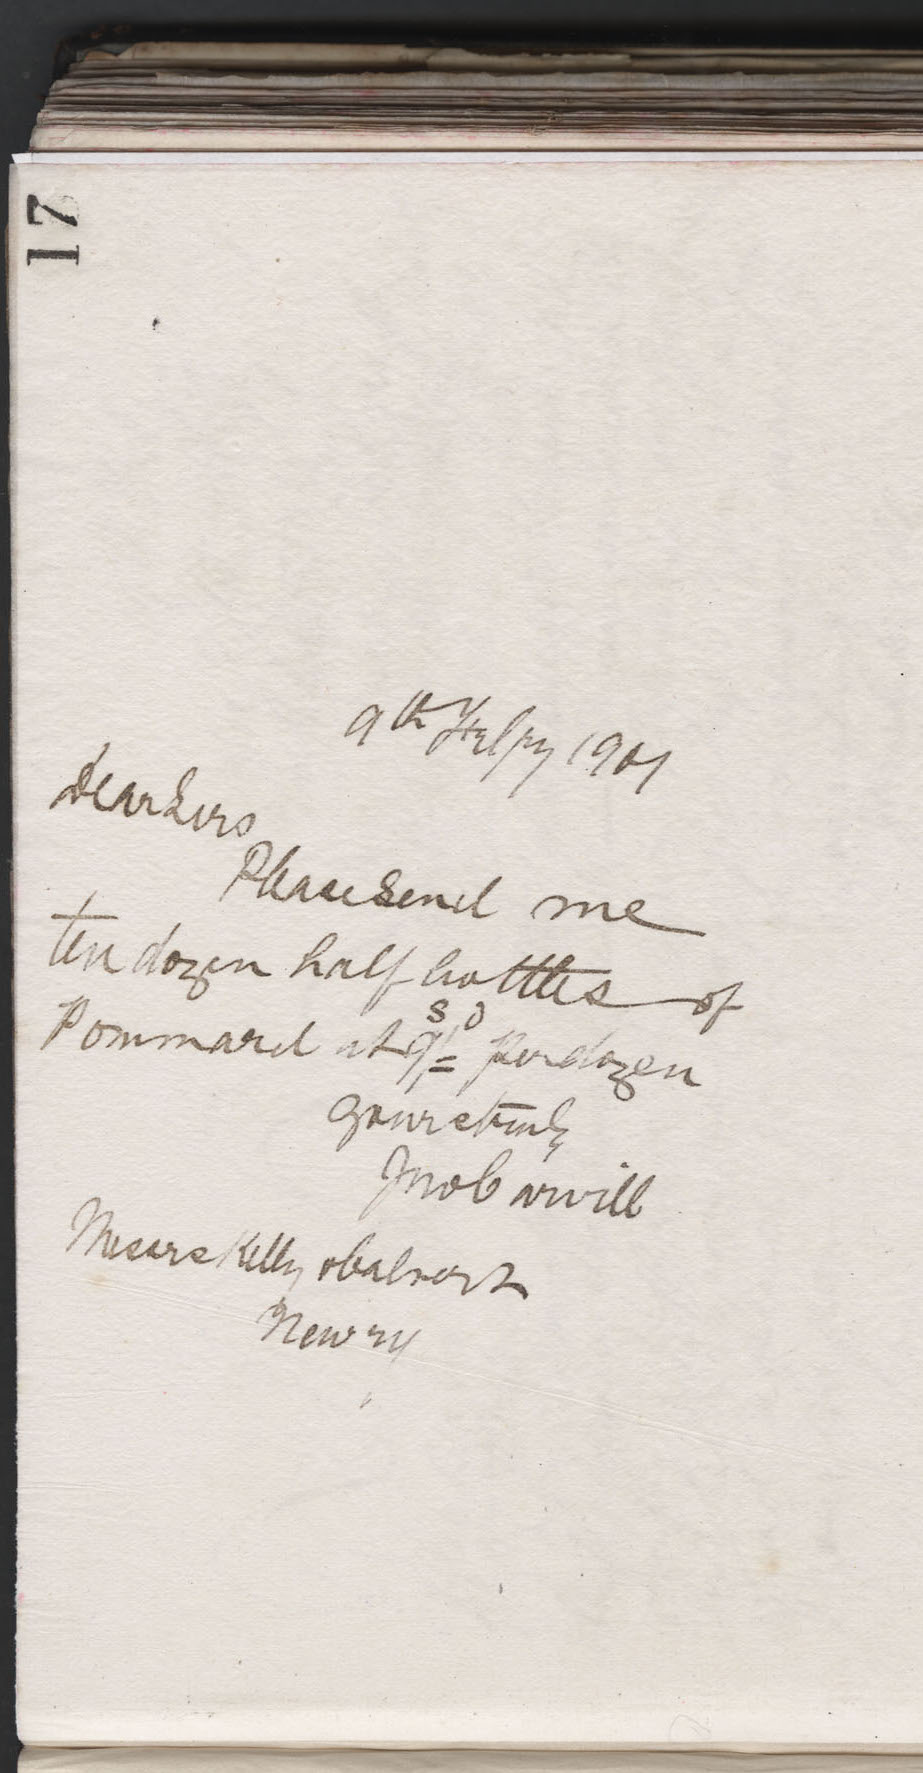 17
9th Feby 1901
Dear Sirs
Please send me
ten dozen half bottles of
Pommard at 9s/=D per dozen
Yours truly
Jno Carvill
Messrs Kelly &
Newry